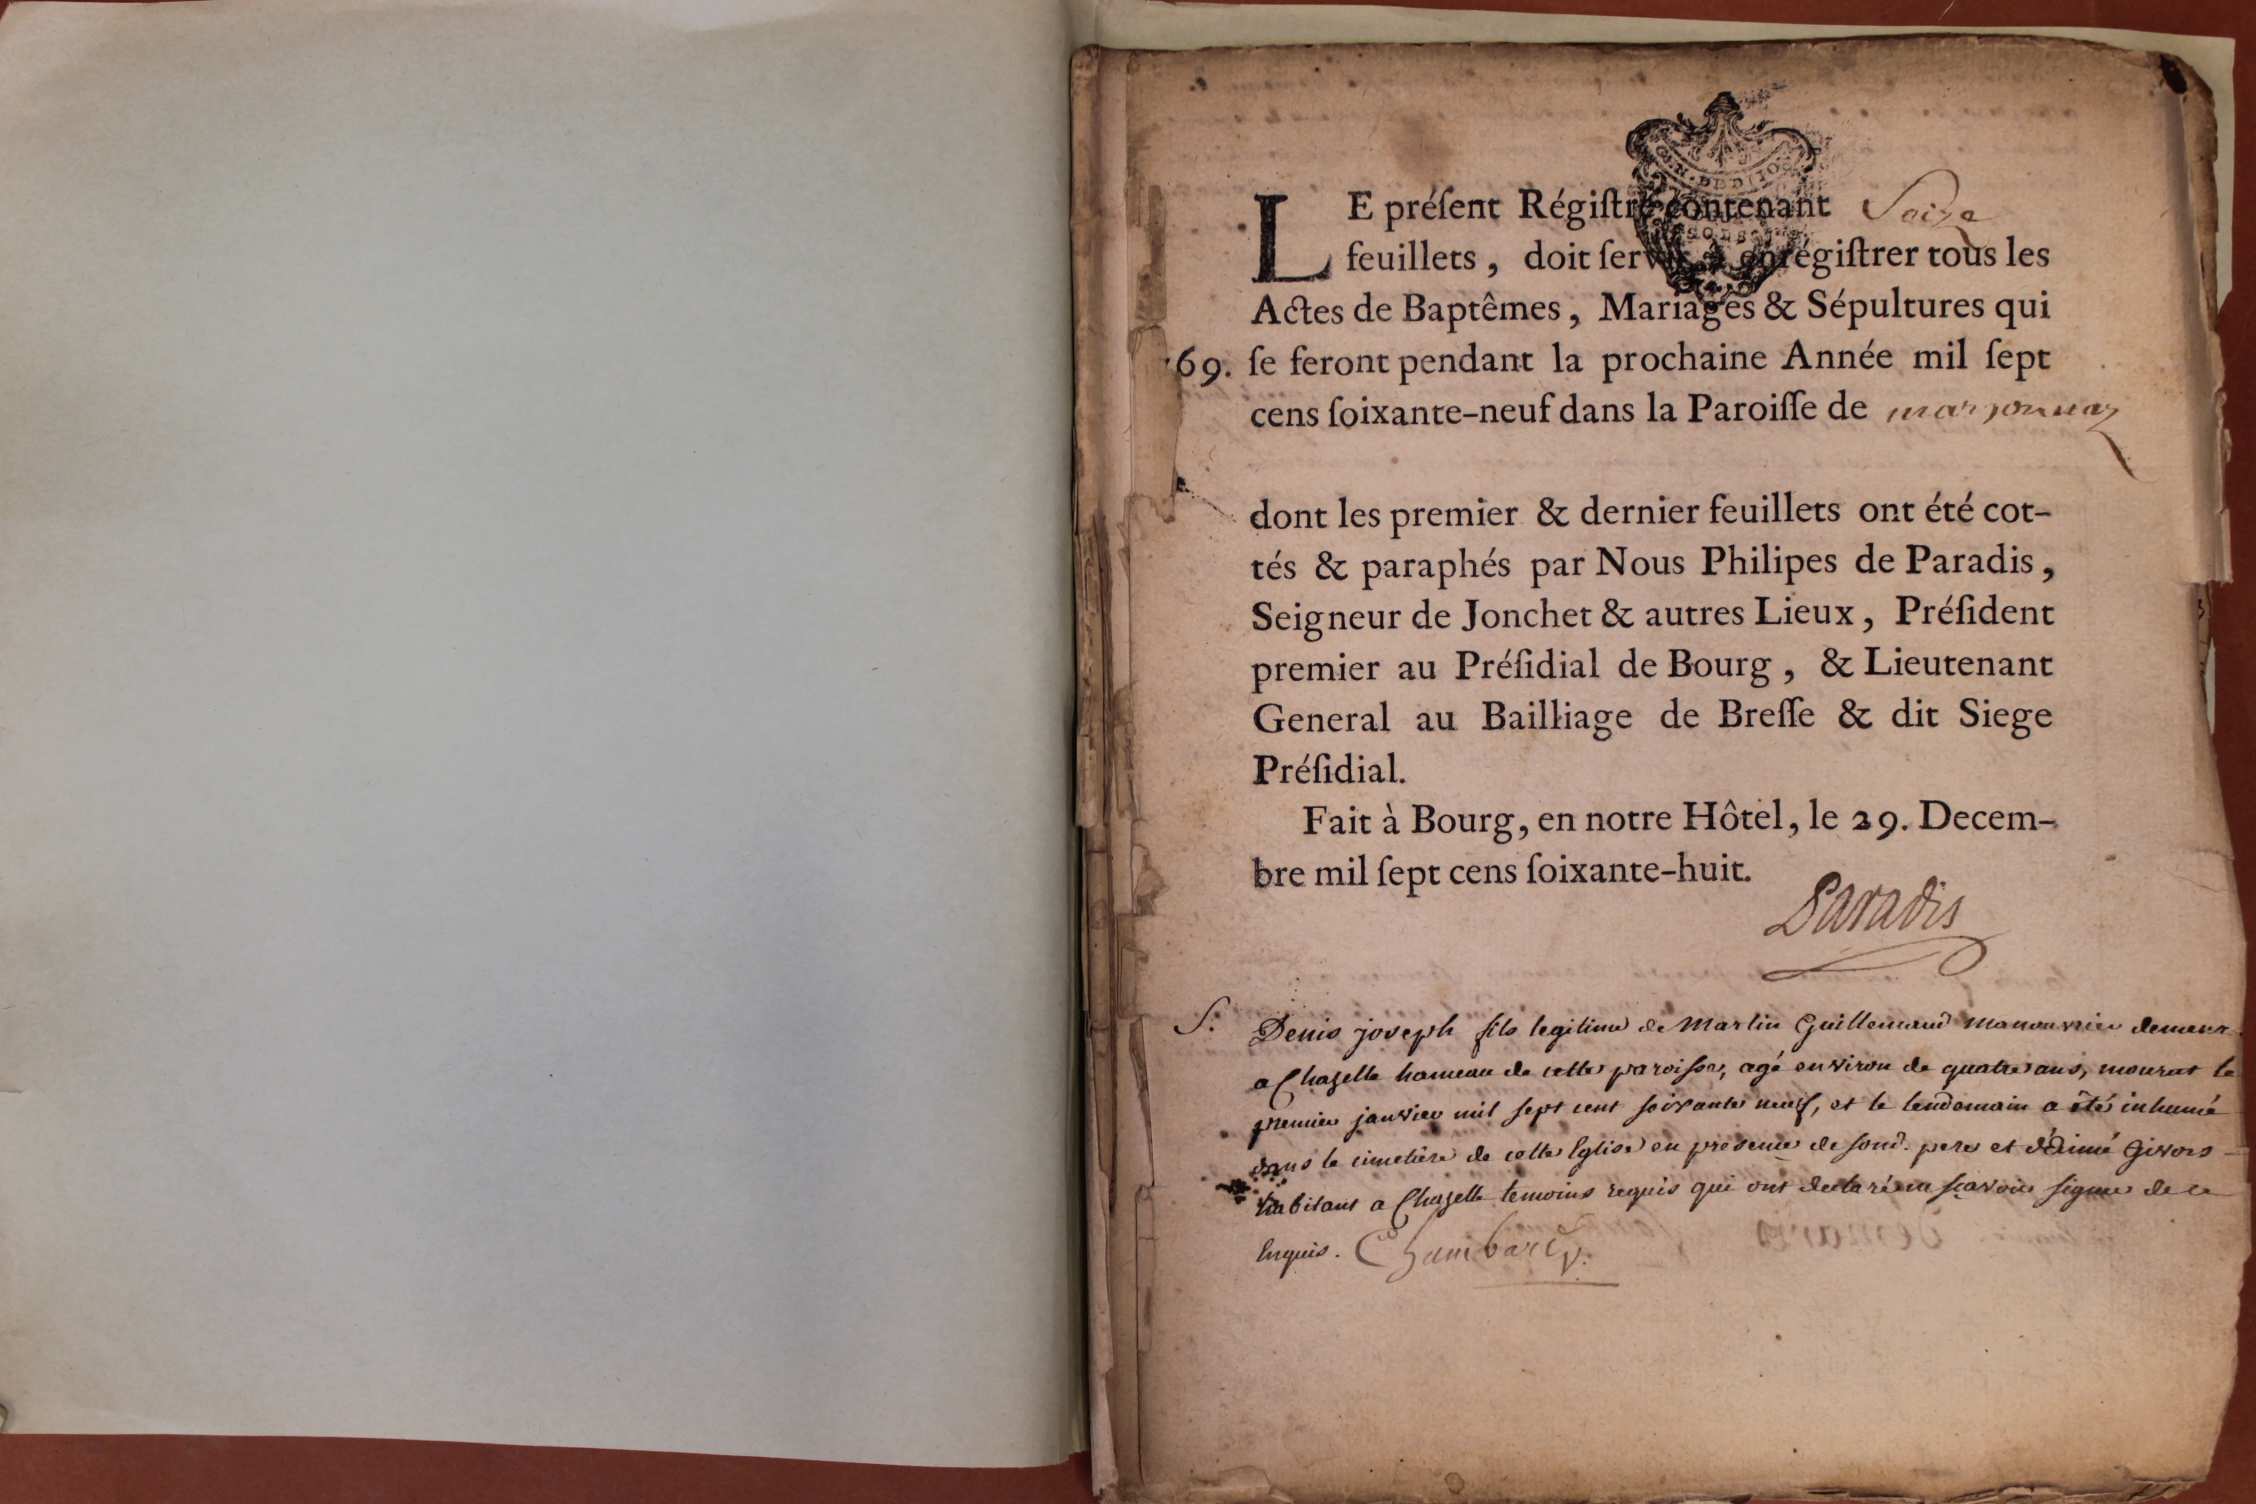 LE préſent Régiſtre contenant Seize
feuillets, doit ſervir à enrégiſtrer tous les
Actes de Baptêmes, Mariages & Sépultures qui
69. ſe feront pendant la prochaine Année mil ſept
cens ſoixante-neuf dans la Paroiſſe de marsonnaz
dont les premier & dernier feuillets ont été cot-
tés & paraphés par Nous Philipes de Paradis,
Seigneur de Jonchet & autres Lieux, Préſident
premier au Préſidial de Bourg, & Lieutenant
General au Bailliage de Breſſe & dit Siege
Préſidial.
Fait à Bourg, en notre Hôtel, le 29. Decem-
bre mil ſept cens ſoixante-huit.
Paradis
S. Denis joseph fils legitime de Martin Guillemaud manouvrier demeur
a Chazelle hameau de cette paroisse, agé environ de quatre ans, mourut le
premier janvier mil sept cent soixante neuf, et le lendemain a été inhumé
dans le cimetière de cette Eglise en presence de sond. pere et d'aimé Givors
habitant a Chazelle temoins requis qui ont declaré ne sçavoir signer de ce
Enquis. Chambard